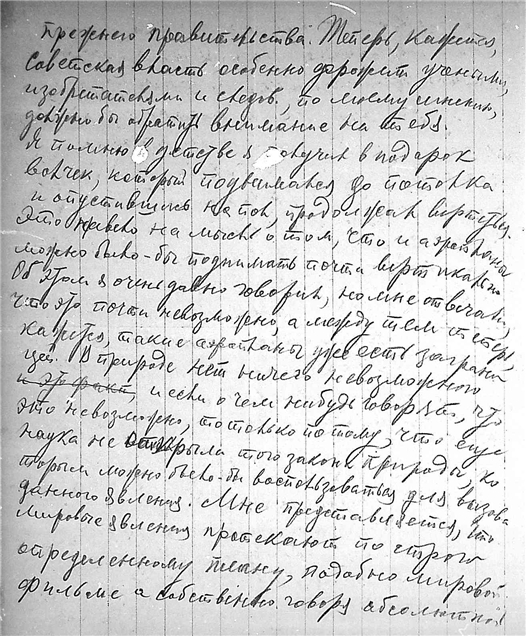 прежнего правительства. Теперь, кажется,
Советская власть особенно дорожит учеными,
изобретателями и следов., по моему мнению,
должно бы обратить внимание на тебя.
Я помню в детстве я получил в подарок
волчек, который поднимался до потолка
и опустившись на пол, продолжал вертеться.
Это навело на мысль о том, что и аэропланы
можно было-бы поднимать почти вертикально
Об этом я очень давно говорил, но мне отвечали,
что это почти невозможно, а между тем теперь,
кажется, такие аэропланы уже есть заграни
цей. В природе нет ничего невозможного
и это факт, и если о чем нибудь говорят, что
это невозможно, то только потому, что еще
наука не открыла того закона природы, ко
торым можно было-бы воспользоваться для вызова
данного явления. Мне представляется, что
мировые явления протекают по строго
определенному плану, подобно мировой
фильме а собственно говоря абсолютной